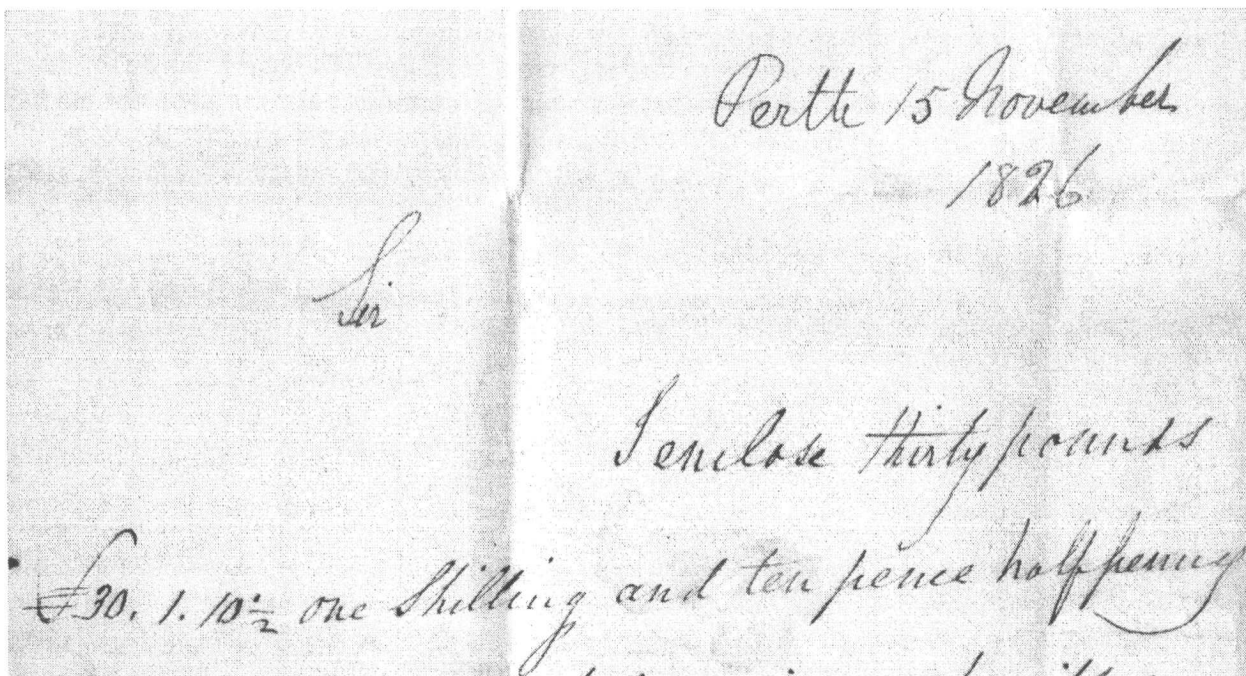 Perth 15 November
1826
Sir
I enclose thirty pounds
£30. 1. 10½ one Shilling and ten pence halfpenny